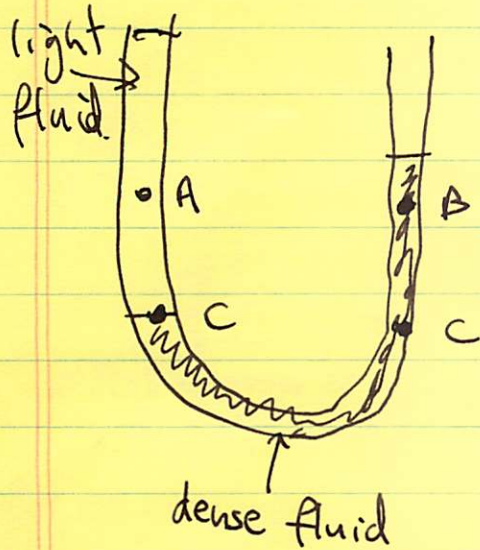 light
fluid.
A
B
C
C
dense fluid